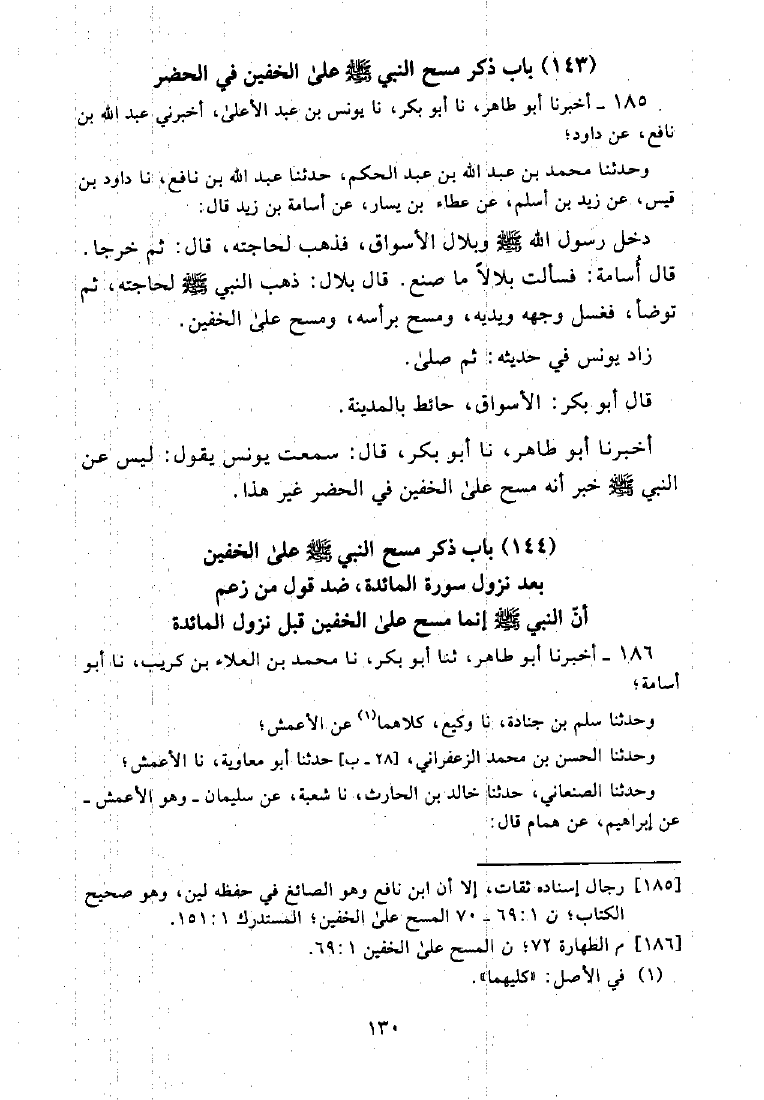 (١٤٣) باب ذكر مسح النبي ﷺ على الخفين في الحضر
١٨٥ ـ أخبرنا أبو طاهر، نا أبو بكر، نا يونس بن عبد الأعلى، أخبرني عبد الله بن
نافع، عن داود؛
وحدثنا محمد بن عبد الله بن عبد الحكم، حدثنا عبد الله بن نافع، نا داود بن
قيس، عن زيد بن أسلم، عن عطاء بن يسار، عن أسامة بن زيد قال:
دخل رسول الله ﷺ وبلال الأسواق، فذهب لحاجته، قال: ثم خرجا.
قال أُسامة: فسألت بلالاً ما صنع. قال بلال: ذهب النبي ﷺ لحاجته، ثم
توضأ، فغسل وجهه ويديه، ومسح برأسه، ومسح على الخفين.
زاد يونس في حديثه: ثم صلى.
قال أبو بكر: الأسواق، حائط بالمدينة.
أخبرنا أبو طاهر، نا أبو بكر، قال: سمعت يونس يقول: ليس عن
النبي ﷺ خبر أنه مسح على الخفين في الحضر غير هذا.
(١٤٤) باب ذكر مسح النبي ﷺ على الخفين
بعد نزول سورة المائدة، ضد قول من زعم
أنّ النبي ﷺ إنما مسح على الخفين قبل نزول المائدة
١٨٦ ـ أخبرنا أبو طاهر، ثنا أبو بكر، نا محمد بن العلاء بن كريب، نا أبو
أسامة؛
وحدثنا سلم بن جنادة، نا وكيع، كلاهما(١) عن الأعمش؛
وحدثنا الحسن بن محمد الزعفراني، [٢٨ ـ ب] حدثنا أبو معاوية، نا الأعمش؛
وحدثنا الصنعاني، حدثنا خالد بن الحارث، نا شعبة، عن سليمان ـ وهو الأعمش ـ
عن إبراهيم، عن همام قال:
[١٨٥] رجال إسناده ثقات، إلا أن ابن نافع وهو الصائغ في حفظه لين، وهو صحيح
الكتاب؛ ن ١ :٦٩ ـ ٧٠ المسح على الخفين؛ المستدرك ١ :١٥١.
[١٨٦] م الطهارة ٧٢؛ ن المسح على الخفين ١ :٦٩.
(١) في الأصل: «كليهما».
١٣٠